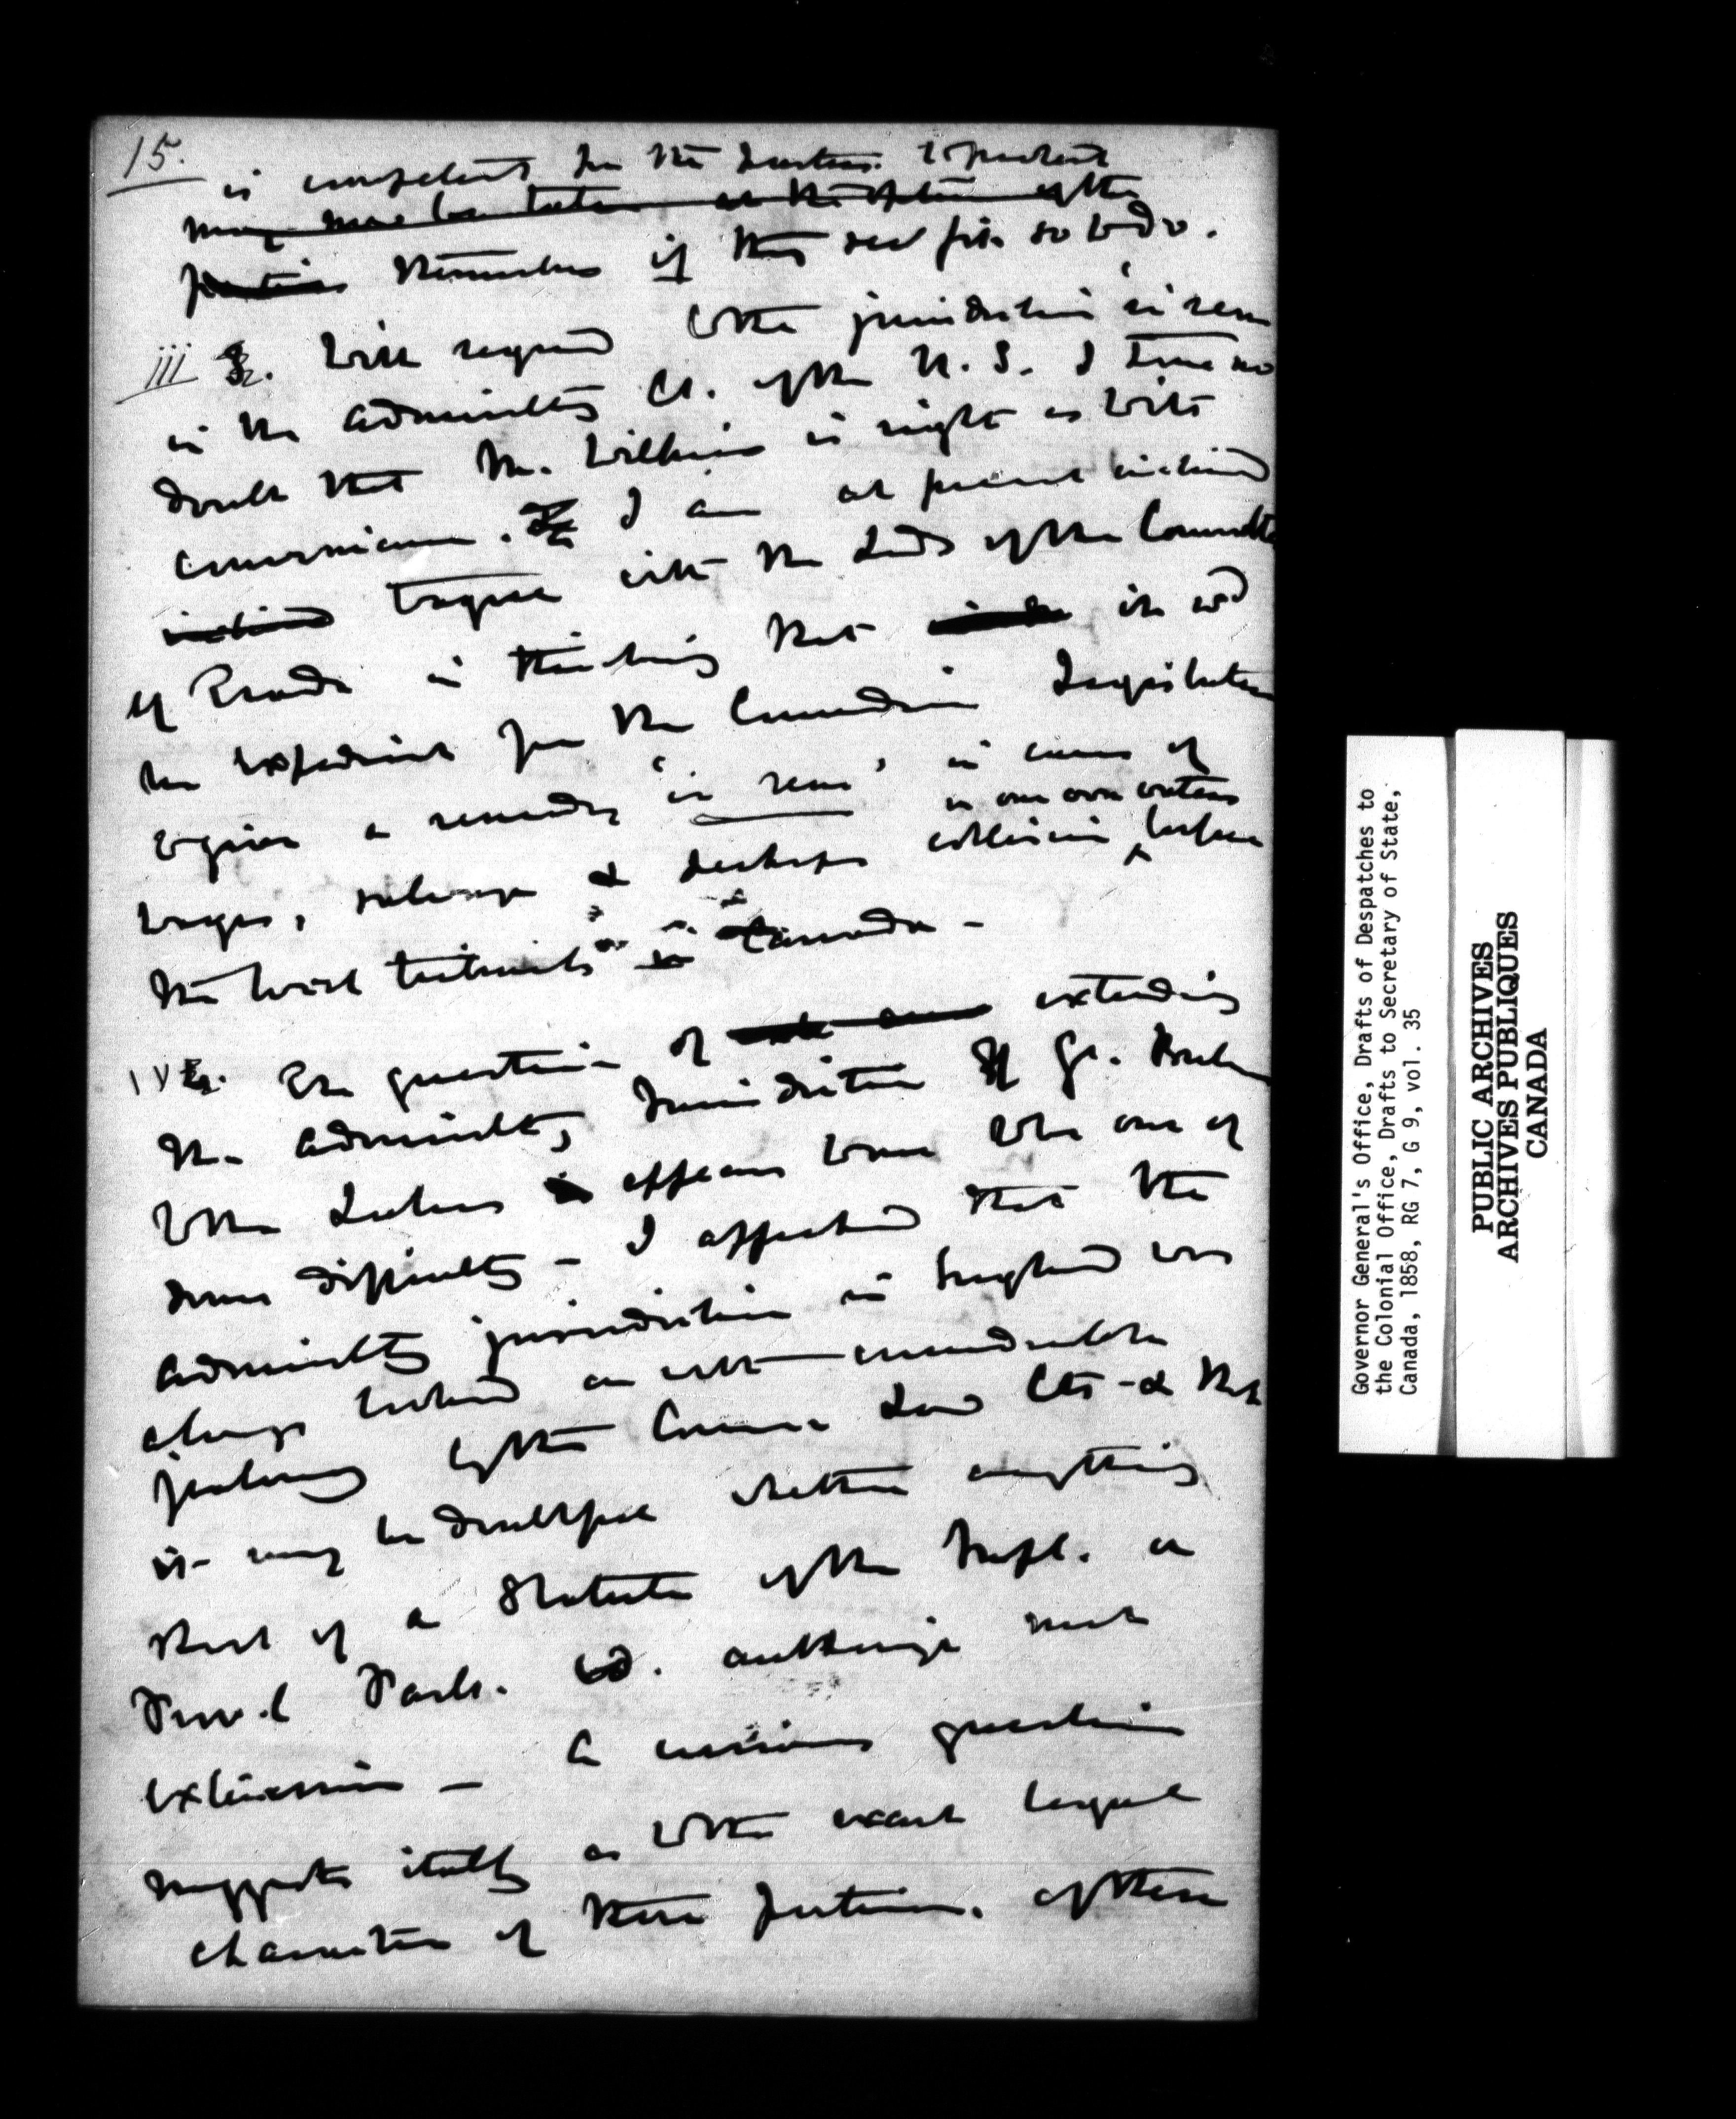 15.
is competent for the parties to protect
may
themselves if they see fit so to do.
iii With regard to the jurisdiction 'in rem
in the Admiralty Ct. of the U.S. I have no
doubt that Mr. Wilkins is right as to its
convenience. I am at present inclined
inclined to agree with the Lords of the Committee
of Trade in thinking that it wd
be expedient for the Canadian Legislature
to give a remedy 'in rem' in cases of
wages, salvage & perhaps collision in our own waters before
the local tribunals in Canada -
IV The question of extending
the Admiralty Jurisdiction of Gt. Britain
to the Lakes appears to me to be one of
some difficulty - I apprehend that the
Admiralty jurisdiction in England was
always looked on with considerable
jealousy by the Common Law Cts - & that
it may be doubtful whether anything
short of a Statute of the Impl. or
Prov.l Parlt. cd. authorize such
extension - A curious question
suggests itself as to the exact legal
character of these portions of these
Governor General's Office, Drafts of Despatches to
the Colonial Office, Drafts to Secretary of State,
Canada, 1858, RG 7, G 9, vol. 35
PUBLIC ARCHIVES
ARCHIVES PUBLIQUES
CANADA